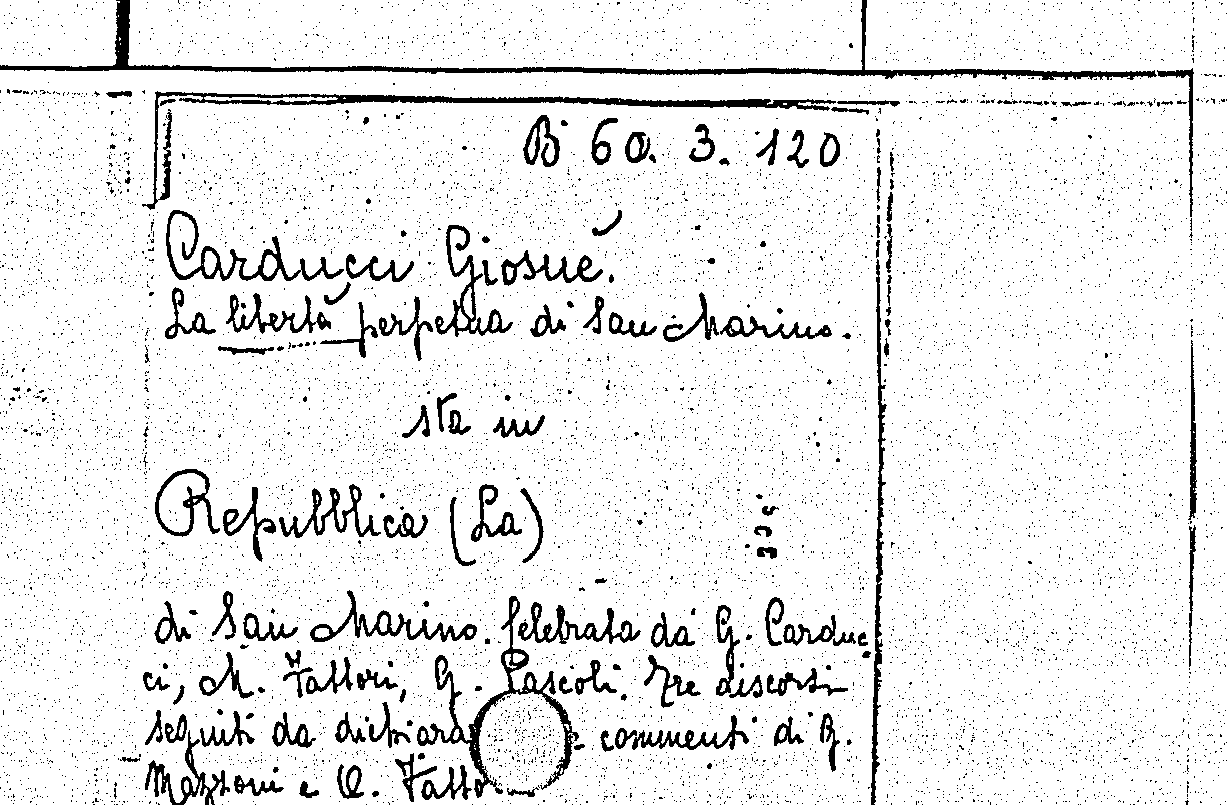 B 60. 3. 120
Carducci Giosuè.
La libertà perpetua di San Marino.
sta in
Repubblica (La)
di San Marino. Celebrata da G. Carduc
ci, M. Fattori, G. Pascoli. Tre discorsi
seguiti da dichiara commenti di G.
Mazzoni e O. Fatto